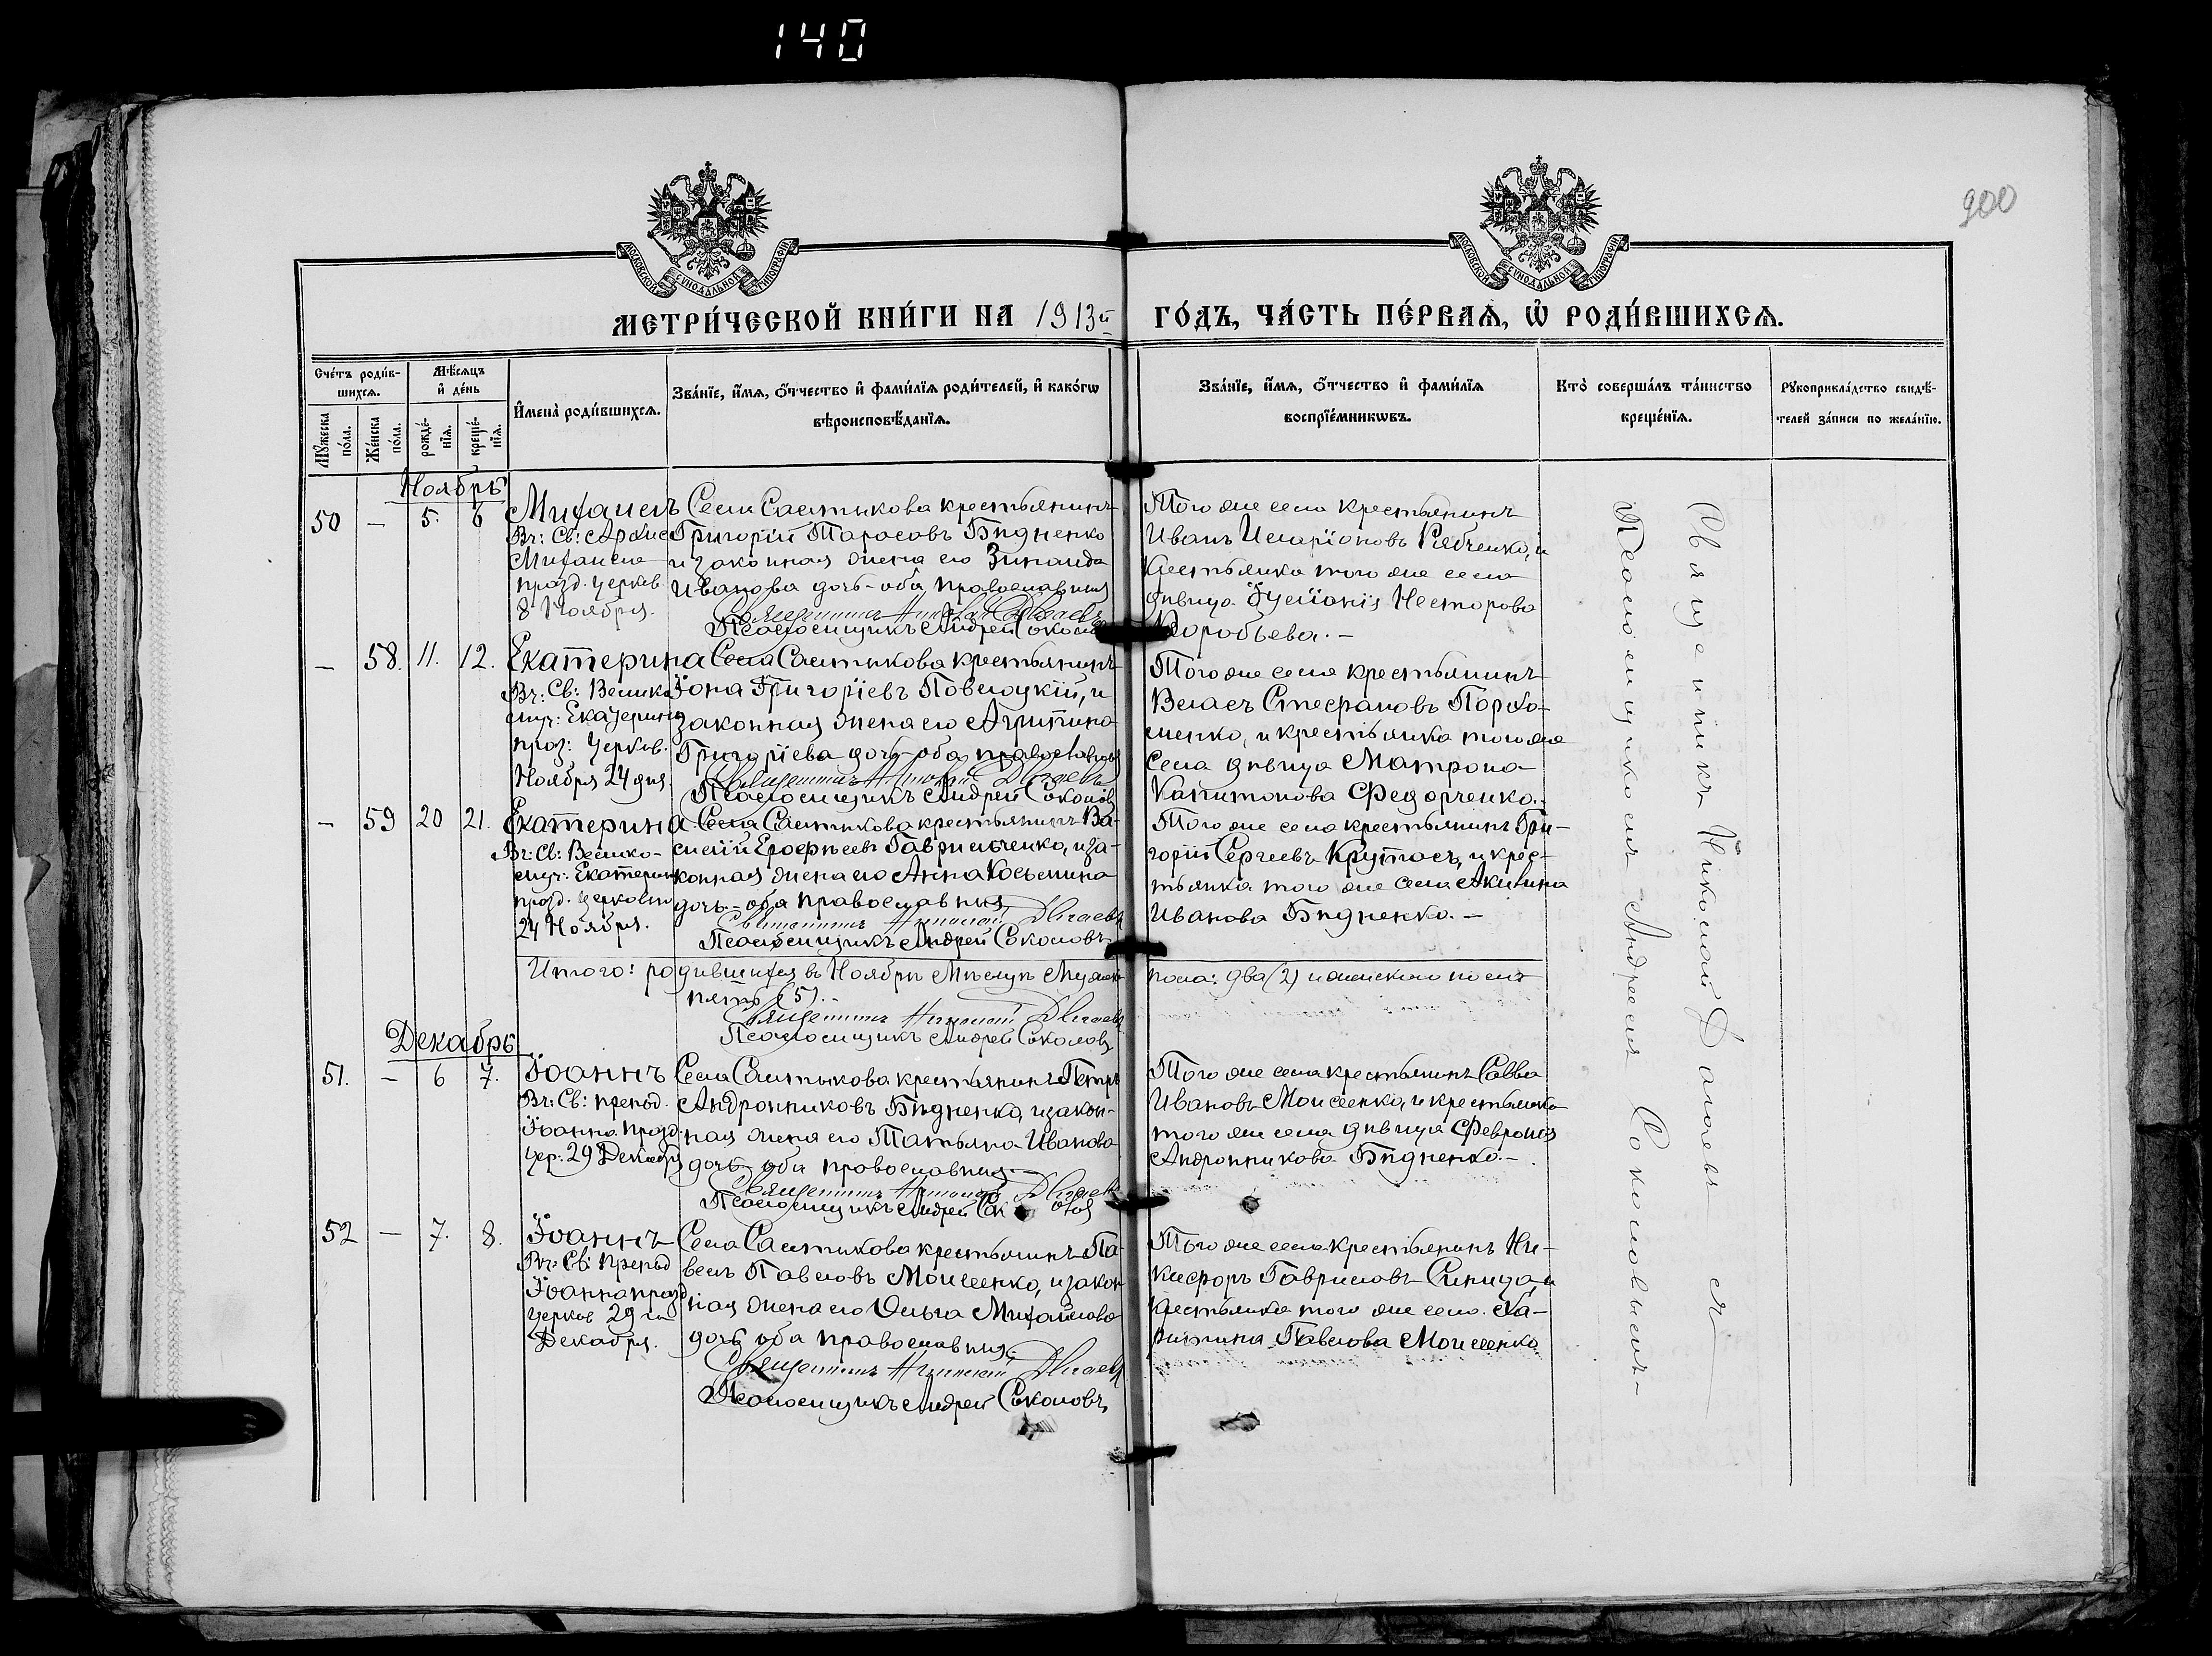 140
900
МОСКОВСКОЙ СѴНОДАЛЬНОЙ ТИПОГРАФІИ
МОСКОВСКОЙ СѴНОДАЛЬНОЙ ТИПОГРАФІИ
МЕТРИ́ЧЕСКОЙ КНИ́ГИ НА 1913й ГО́ДЪ, ЧА́СТЬ ПЕ́РВАѦ, Ѽ РОДИ́ВШИХСѦ.
Сче́тъ роди́в-
шихсѧ.
Мѣ́сяцъ
и҆ де́нь
Мꙋ́жеска по́ла.
Же́нска по́ла.
рожде́-
нїѧ.
креще́-
нїѧ.
И҆мена̀ роди́вшихсѧ.
Зва́нїе, и҆́мѧ, ѻ҆́тчество и҆ фами́лїѧ роди́телей, и҆ како́гѡ
вѣроисповѣ́данїѧ.
Зва́нїе, и҆́мѧ, ѻ҆́тчество и҆ фами́лїѧ
воспрїе́мникѡвъ.
Кто̀ соверша́лъ та́инство
креще́нїѧ.
Рꙋкоприкла́дство свидѣ́-
телей за́писи по жела́нїю.
Ноябрь
50 — 5. 6
Михаилъ
Въ: Св: Архис
Михаила
празд. церков.
8 Ноября.
Села Салтыкова крестьянинъ
Григорій Тарасовъ Бидненко
и законная жена его Зинаида
Иванова дочь - оба православныя
Священникъ Николай
Псаломщикъ Андрей Соколов
Того же села крестьянинъ
Иванъ Иларіоновъ Рябченко, и
крестьянка того же села
дѣвица Іуліанія Несторова
Воробьева. —
— 58. 11. 12.
Екатерина
Въ: Св: Велико
муч: Екатерины
праз: Церков.
Ноября 24 дня.
Села Салтыкова крестьянинъ
Іона Григоріевъ Повлоцкій, и
законная жена его Агрипина
Григоріева дочь - оба православныя
Священникъ Николай
Псаломщикъ Андрей Соколовъ
Того же села крестьянинъ
Власъ Стефановъ Пархо-
менко, и крестьянка того же
села дѣвица Матрона
Капитонова Федорченко.
— 59 20 21.
Екатерина
Въ: Св: Велико-
муч: Екатерин
празд. церковн
24 Ноября.
Села Салтыкова крестьянинъ Ва-
силій Ерофѣевъ Гаврильченко, и за-
конная жена его Анна Косьмина
дочь - оба православныя,
Священникъ Николай
Псаломщикъ Андрей Соколовъ
Того же села крестьянинъ Гри-
горій Сергеевъ Крутасъ, и крес-
тьянка того же села Акилина
Иванова Бидненко. —
Итого: родившихся въ Ноябрѣ мѣсяцѣ мужеска пола: два (2) и женскаго пола
пять (5). -
Священникъ Николай
Псаломщикъ Андрей Соколовъ
Декабрь
51. — 6 7.
Іоаннъ
Въ: Св: препод.
Іоанна празд.
цер: 29 Декабря
Села Салтыкова крестьянинъ Петръ
Андронниковъ Бидненко, и закон-
ная жена его Татьяна Иванова
дочь - оба православныя.
Священникъ Николай
Псаломщикъ Андрей
Того же села крестьянинъ Савва
Ивановъ Моисеенко, и крестьянка
того же села дѣвица Февронія
Андронникова Бидненко. —
52 — 7. 8.
Іоаннъ
Въ: Св: Препод
Іоанна празд
церков 29 го
Декабря.
Села Салтыкова крестьянинъ Па-
велъ Павловъ Моисеенко, и закон
ная жена его Ольга Михайлова
дочь оба православныя.
Священникъ Николай
Псаломщикъ Андрей Соколовъ
Того же села крестьянинъ Ни-
кифоръ Гавриловъ Синица, и
крестьянка того же села Ха-
ритина Павлова Моисеенко
Священникъ Николай
Псаломщикомъ Андреемъ Соколовымъ -